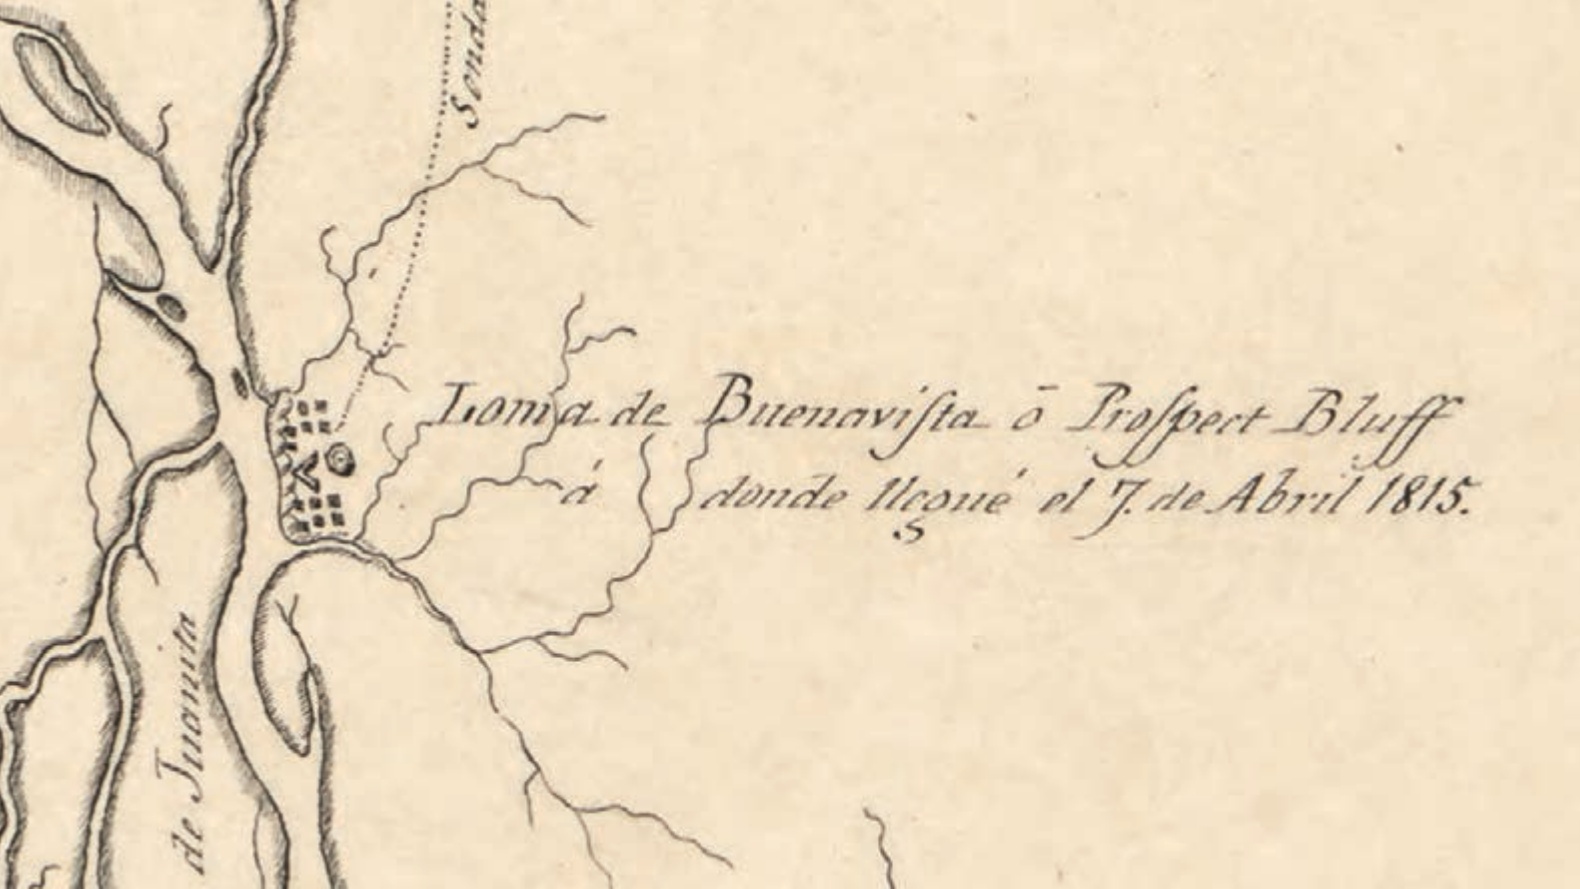 Senda
Loma de Buenavista ō Prospect Bluff
á donde llegué el 7. de Abril 1815.
de Juanita